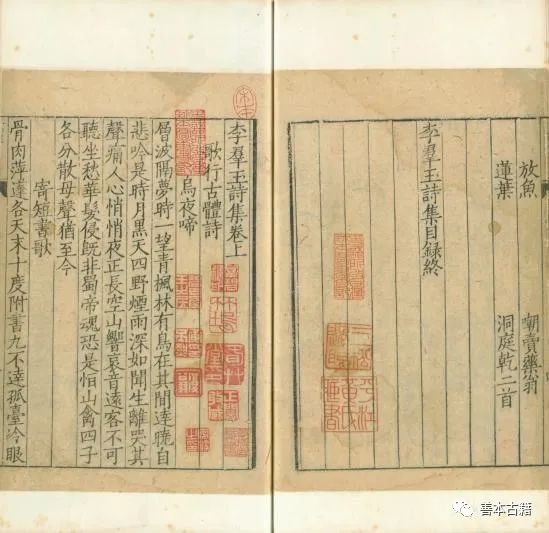 放魚　嘲賣藥翁
蓮葉　洞庭乾二首
李羣玉詩集目録終
李羣玉詩集卷上
歌行古體詩
烏夜啼
層波隔夢時一望青楓林有鳥在其間達曉自
悲吟是時月黒天四野煙雨深如聞生離哭其
聲痛人心悄悄夜正長空山響哀音逺客不可
聽坐愁華髮侵既非蜀帝魂恐是怕山禽四子
各分散母聲猶至今
寄短書歌
骨肉萍逺各天末十度附書九不達孤臺冷眼
善本古籍